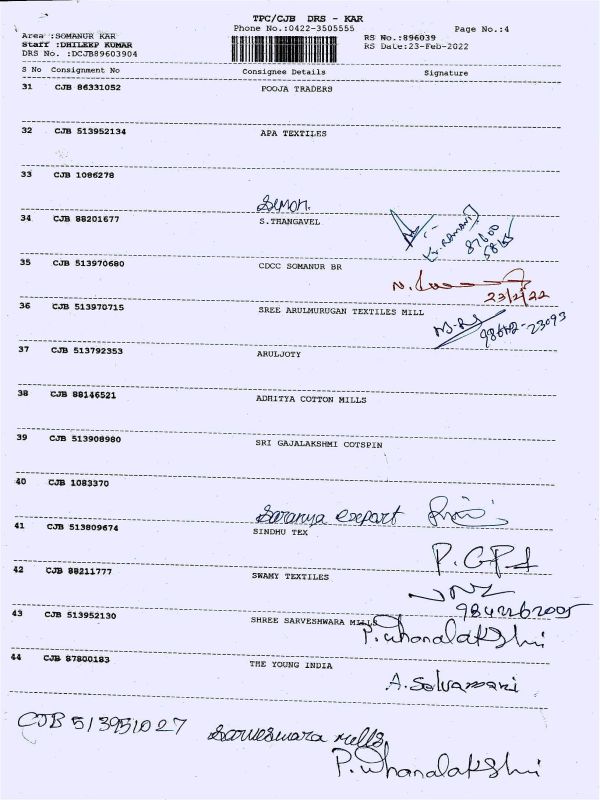 TPC/CJB DRS - KAR
Phone No.:0422-3505555
Page No.:4
Area :SOMANUR KAR
Staff :DHILEEP KUMAR
DRS No. :DCJB89603904
RS No.:896039
RS Date:23-Feb-2022
S No Consignment No Consignee Details Signature
31 CJB 86331052 POOJA TRADERS
32 CJB 513952134 APA TEXTILES
33 CJB 1086278
Simon.
34 CJB 88201677 S.THANGAVEL
35 CJB 513970680 CDCC SOMANUR BR
23/2/22
36 CJB 513970715 SREE ARULMURUGAN TEXTILES MILL
37 CJB 513792353 ARULJOTY
38 CJB 88146521 ADHITYA COTTON MILLS
39 CJB 513908980 SRI GAJALAKSHMI COTSPIN
40 CJB 1083370
Saranya export
41 CJB 513809674 SINDHU TEX
42 CJB 88211777 SWAMY TEXTILES
9842262005
43 CJB 513952130 SHREE SARVESHWARA MILLS
P. Dhanalakshmi
44 CJB 87800183 THE YOUNG INDIA
A. Selvamani
CJB 513951027 Sarveswara mills
P. Dhanalakshmi